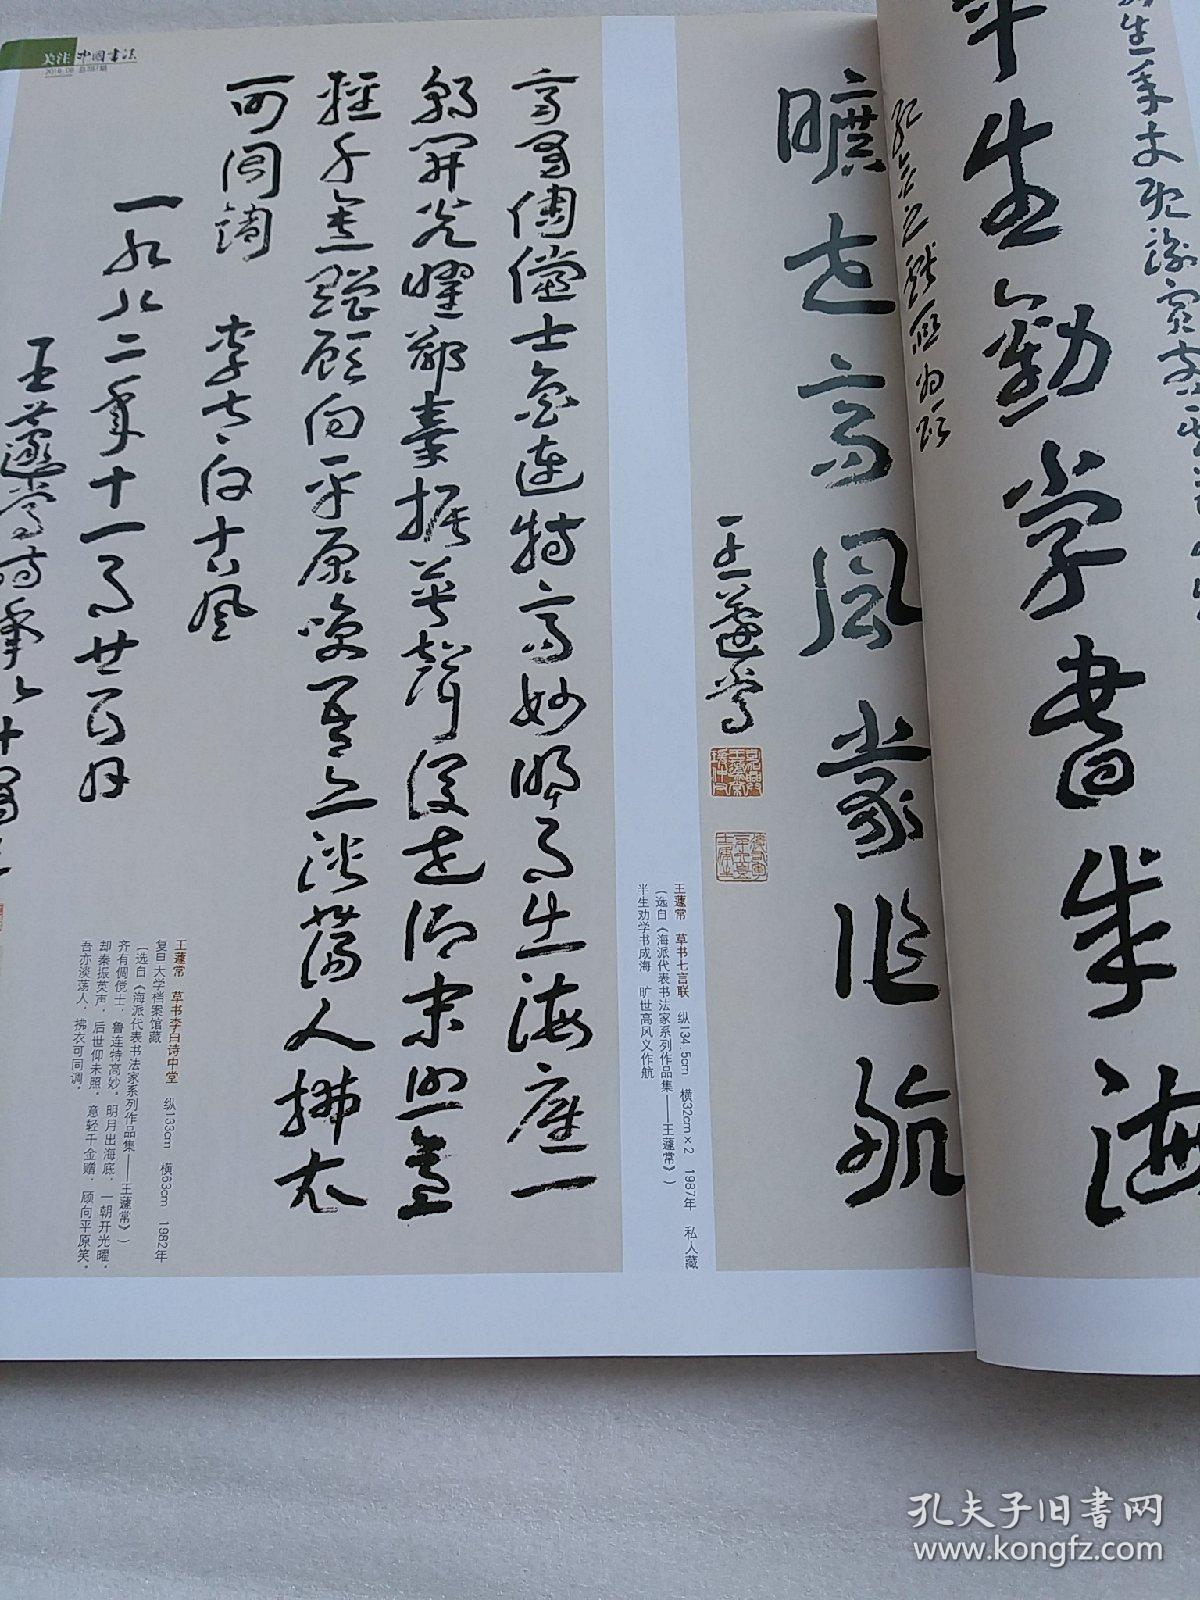 关注 中国书法
半生勤学书成海
旷世高风蒙作航
王蘧常
王蘧常　草书七言联　纵134.5cm　横32cm×2　1987年　私人藏
（选自《海派代表书法家系列作品集——王蘧常》）
半生劝学书成海　旷世高风义作航
齐有倜傥士鲁连特高妙明月出海底一
朝开光曜却秦振英声后世仰末照意
轻千金赠顾向平原笑吾亦淡荡人拂衣
可同调　李太白古风
一九八二年十一月廿
王蘧常时年八十
王蘧常　草书李白诗中堂　纵133cm　横63cm　1982年
复旦大学档案馆藏
（选自《海派代表书法家系列作品集——王蘧常》）
齐有倜傥士，鲁连特高妙。明月出海底，一朝开光曜。
却秦振英声，后世仰末照。意轻千金赠，顾向平原笑。
吾亦淡荡人，拂衣可同调。
孔夫子旧书网
www.kongfz.com